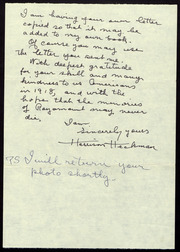 I am having your own letter
copied so that it may be
added to my own book.
Of course you may use
the letter you sent me.
With deepest gratitude
for your skill and many
kindnesses to us Americans
in 1918, and with the
hope that the memories
of Royaumont may never
die,
I am
Sincerely yours
PS I will return your
photo shortly.